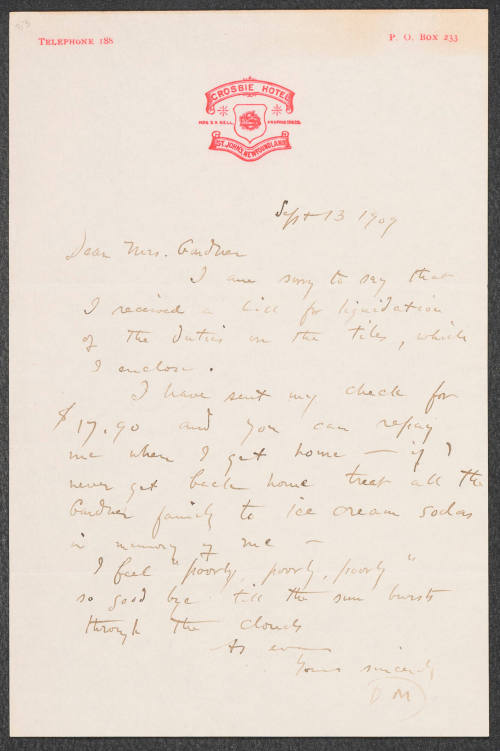 TELEPHONE 188
P. O. BOX 233
CROSBIE HOTEL
MRS S. K. BELL, PROPRIETRESS.
ST. JOHN'S, NEWFOUNDLAND
Sept 13 1909
Dear Mrs. Gardner
I am sorry to say that
I received a bill for liquidation
of the duties on the tiles, which
I enclose.
I have sent my check for
$17.90 and you can repay
me when I get home — if I
never get back home treat all the
Gardner family to ice cream sodas
in memory of me —
I feel "poorly, poorly, poorly"
so good bye till the sun bursts
through the clouds
As ever
Yours sincerely
D M